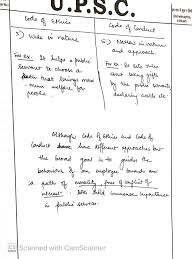 U.P.S.C.
Code of Ethics
Code of Conduct
5.) Wide in nature
5.) Narrow in nature
and approach.
For ex - It helps a public
servant to choose a
that brings more
more welfare for
people.
For ex - It sets rules
about taking gifts
by the public servants,
declaring assets etc.
Although Code of Ethics and Code of
Conduct have different approaches but
the broad goal is to guide the
behaviour of an employee towards
a path of morality, free of conflict of
interest. Both hold immense importance
in public service.
Scanned with CamScanner